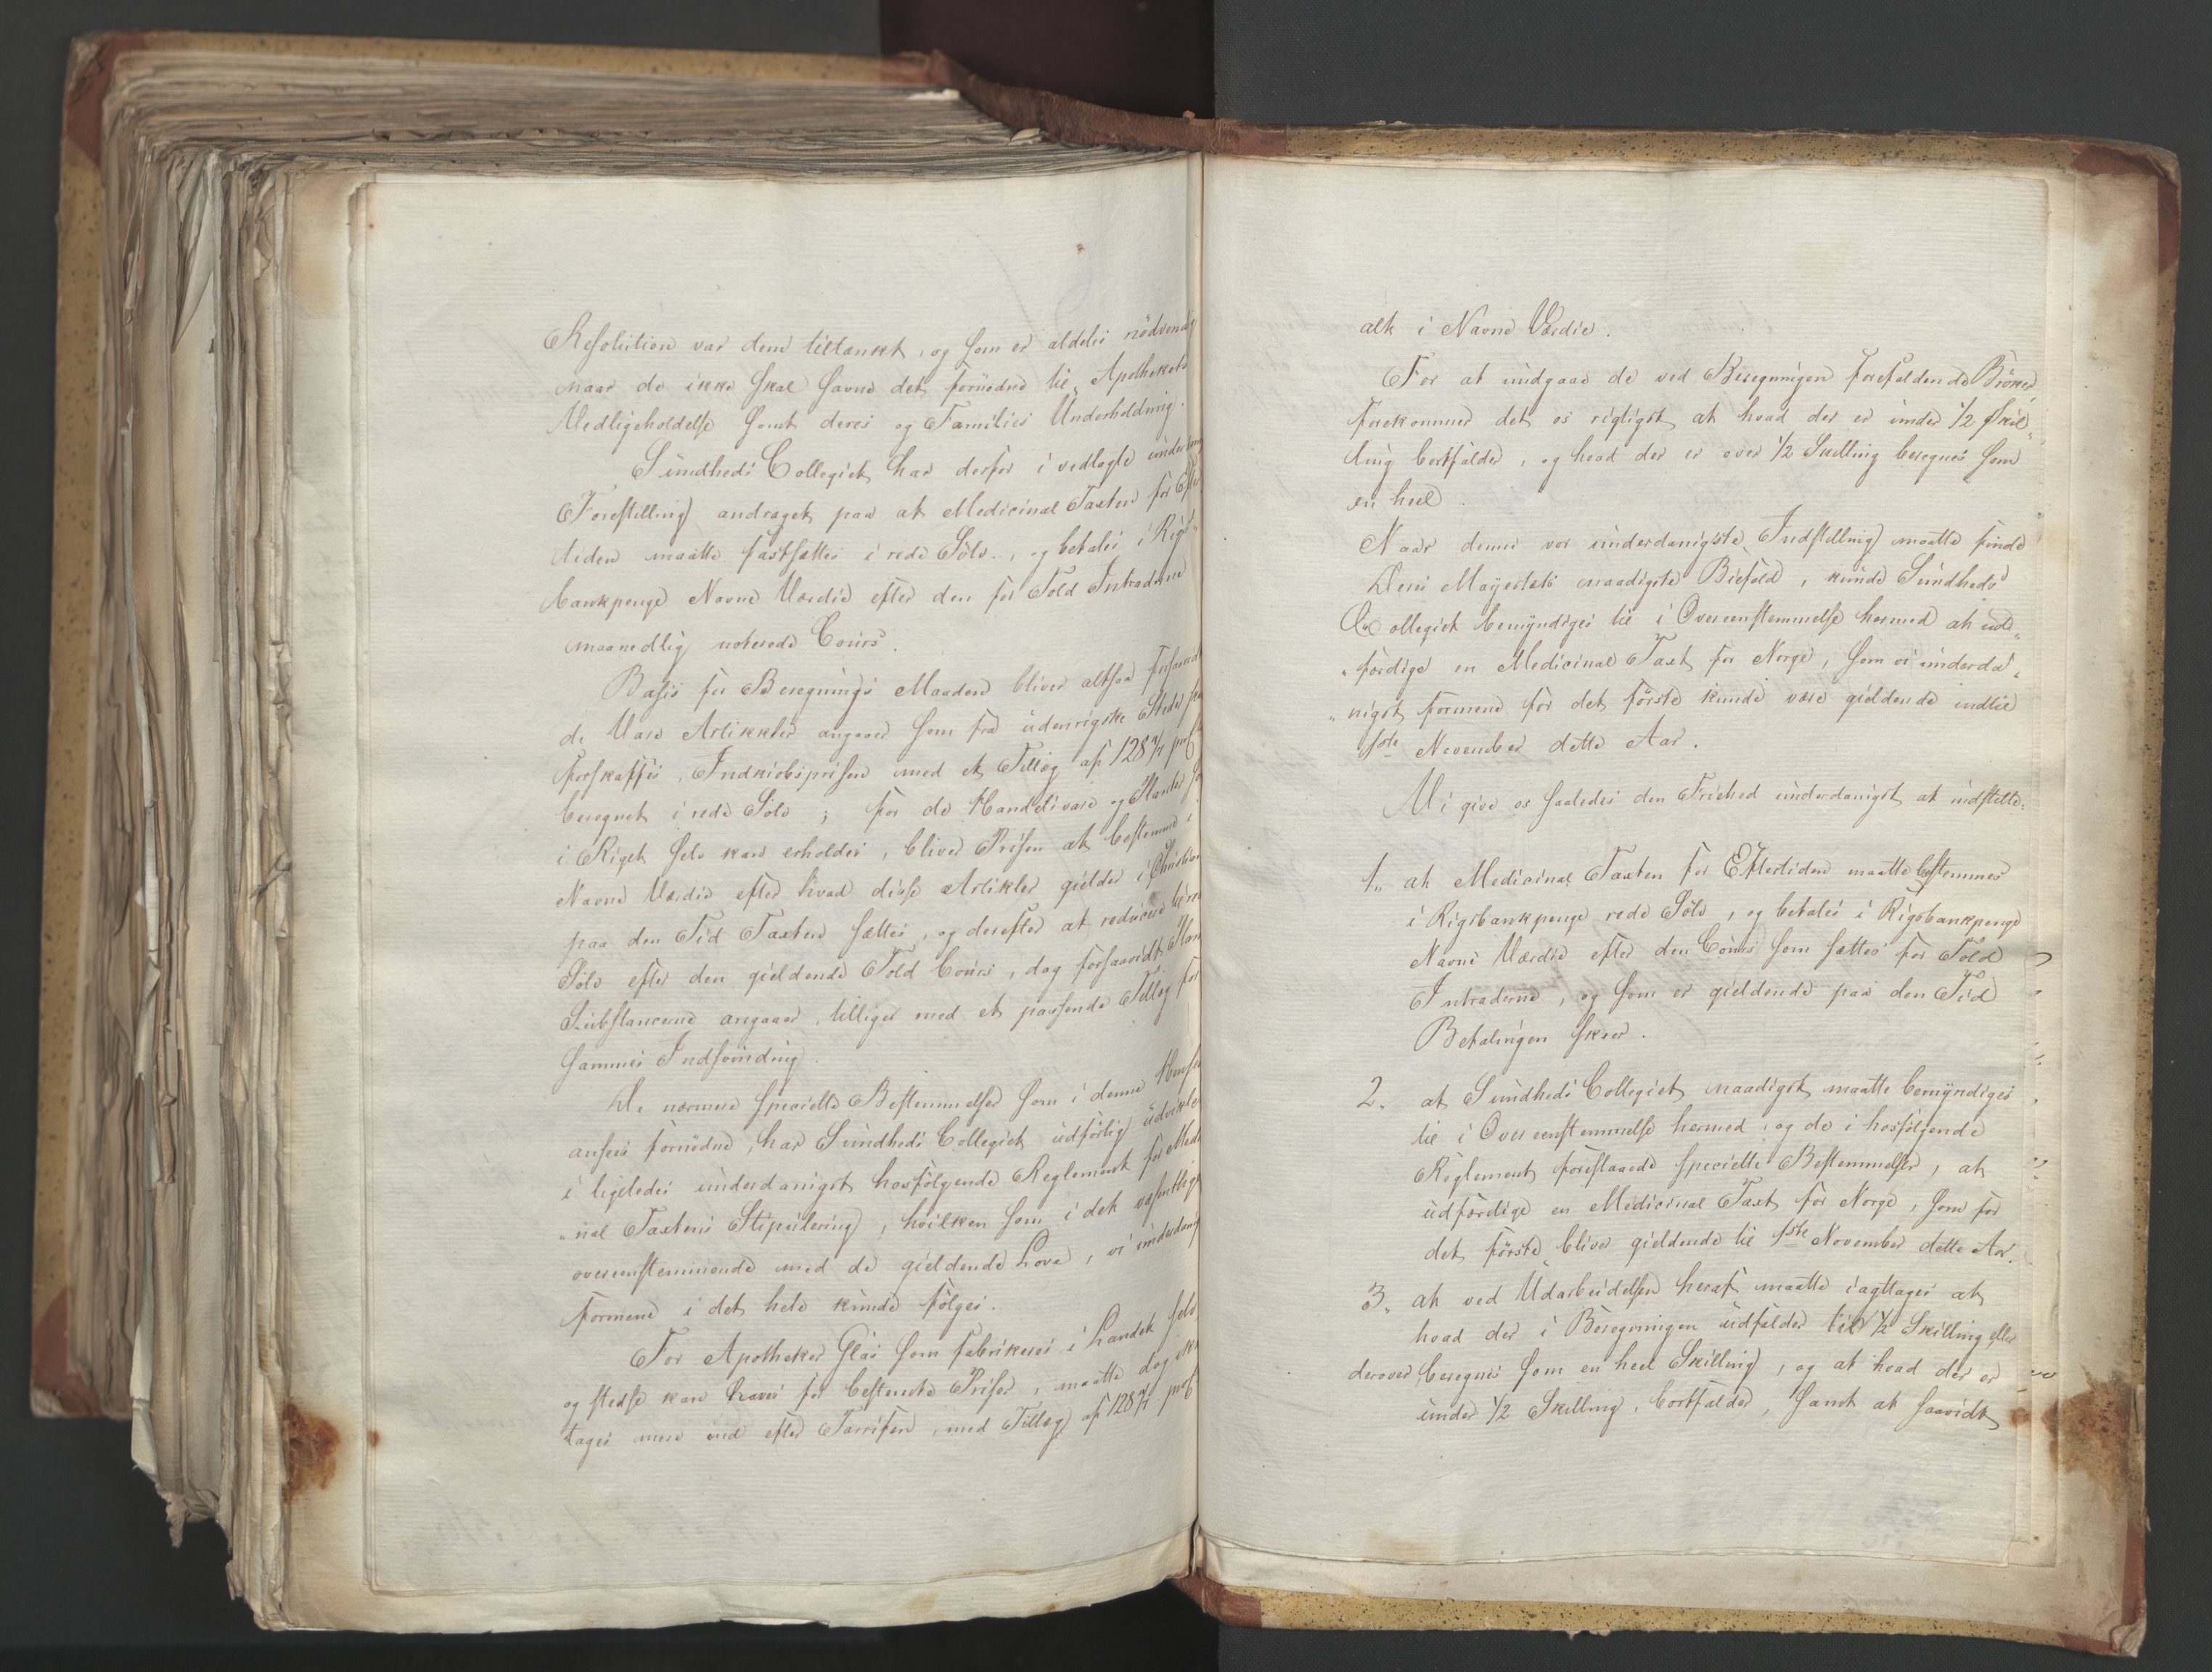 Resolution var dem tiltænkt, og som er aldeles nödvendig
naar de ikke skal savne det fornødne til Apothekets
Vedligeholdelse samt deres og Families Underholdning.
Sundheds Collegiet har derfor i vedlagte under
Forestilling andraget paa at Medicinal Taxten for Efter
tiden maatte fastsættes i rede Sölv, og betales i Rigs
bankpenge Navne Værdie efter den for Told Intraderne
maanedlig noterede Cours.
Basis for Beregnings Maaden bliver altsaa forsaavidt
de Vare Artikkler angaaer som fra udenrigske Steder
forskaffes, Indkiøbsprisen med et Tillæg af 128 4/7 prC
beregnet i rede Sölv; for de Handelsvare og Planter
i Riget selv kan erholdes, bliver Prisen at bestemme i
Navne Værdie efter hvad disse Artikler gielder i Christian
paa den Tid Taxten sættes, og derefter at reducere til rede
Sölv efter den gieldende Told Cours, dog forsaavidt Plan
Substancerne angaaer, tilliger med et passende Tillæg for
sammes Indsvinding.
De nærmere specielle Bestemmelser som i denne Hense
ansees fornødne, har Sundheds Collegiet udförlig udviklet
i ligeledes underdanigst hosfölgende Reglement for Medi
"nal Taxtens Stipulering, hvilken som i det væsentlige
overeensstemmende med de gieldende Love, vi underdanig
formene i det hele kunde fölges.
For Apotheker Glas som fabrikeres i Landet selv
og stedse kan haves for bestemte Priser, maatte dog ikke
tages mere end efter Tarriffen, med Tillæg af 128 4/7 prC
alt i Navne Værdie.
For at undgaae de ved Beregningen forefaldende Bröker,
forekommer det os rigtigst, at hvad der er under 1/2 Skil-
ling bortfalder, og hvad der er over 1/2 Skilling beregnes som
en heel.
Naar denne vor underdanigste Indstilling maatte finde
Deres Mayestæts naadigste Biefald, kunde Sundheds
Collegiet bemyndiges til i Overeensstemmelse hermed at ud-
"færdige en Medicinal Taxt for Norge, som vi underda-
"nigst formene for det förste kunde være gieldende indtil
1ste November dette Aar.
Vi give os saaledes den Friehed underdanigst at indstille:
1. at Medicinal Taxten for Eftertiden maatte bestemmes
i Rigsbankpenge rede Sölv, og betales i Rigsbankpenge
Navne Værdie efter den Cours som sættes for Told
Intraderne, og som er gieldende paa den Tid
Betalingen skeer.
2. at Sundheds Collegiet naadigst maatte bemyndiges
til i Overeensstemmelse hermed, og de i hosfölgende
Reglement foreslaaede specielle Bestemmelser, at
udfærdige en Medicinal Taxt for Norge, som for
det förste bliver gieldende til 1ste November dette Aar.
3. at ved Udarbeidelsen heraf maatte iagttages at
hvad der i Beregningen udfalder til 1/2 Skilling eller
derover, beregnes som en heel Skilling, og at hvad der er
under 1/2 Skilling, bortfalder, samt at saavidt